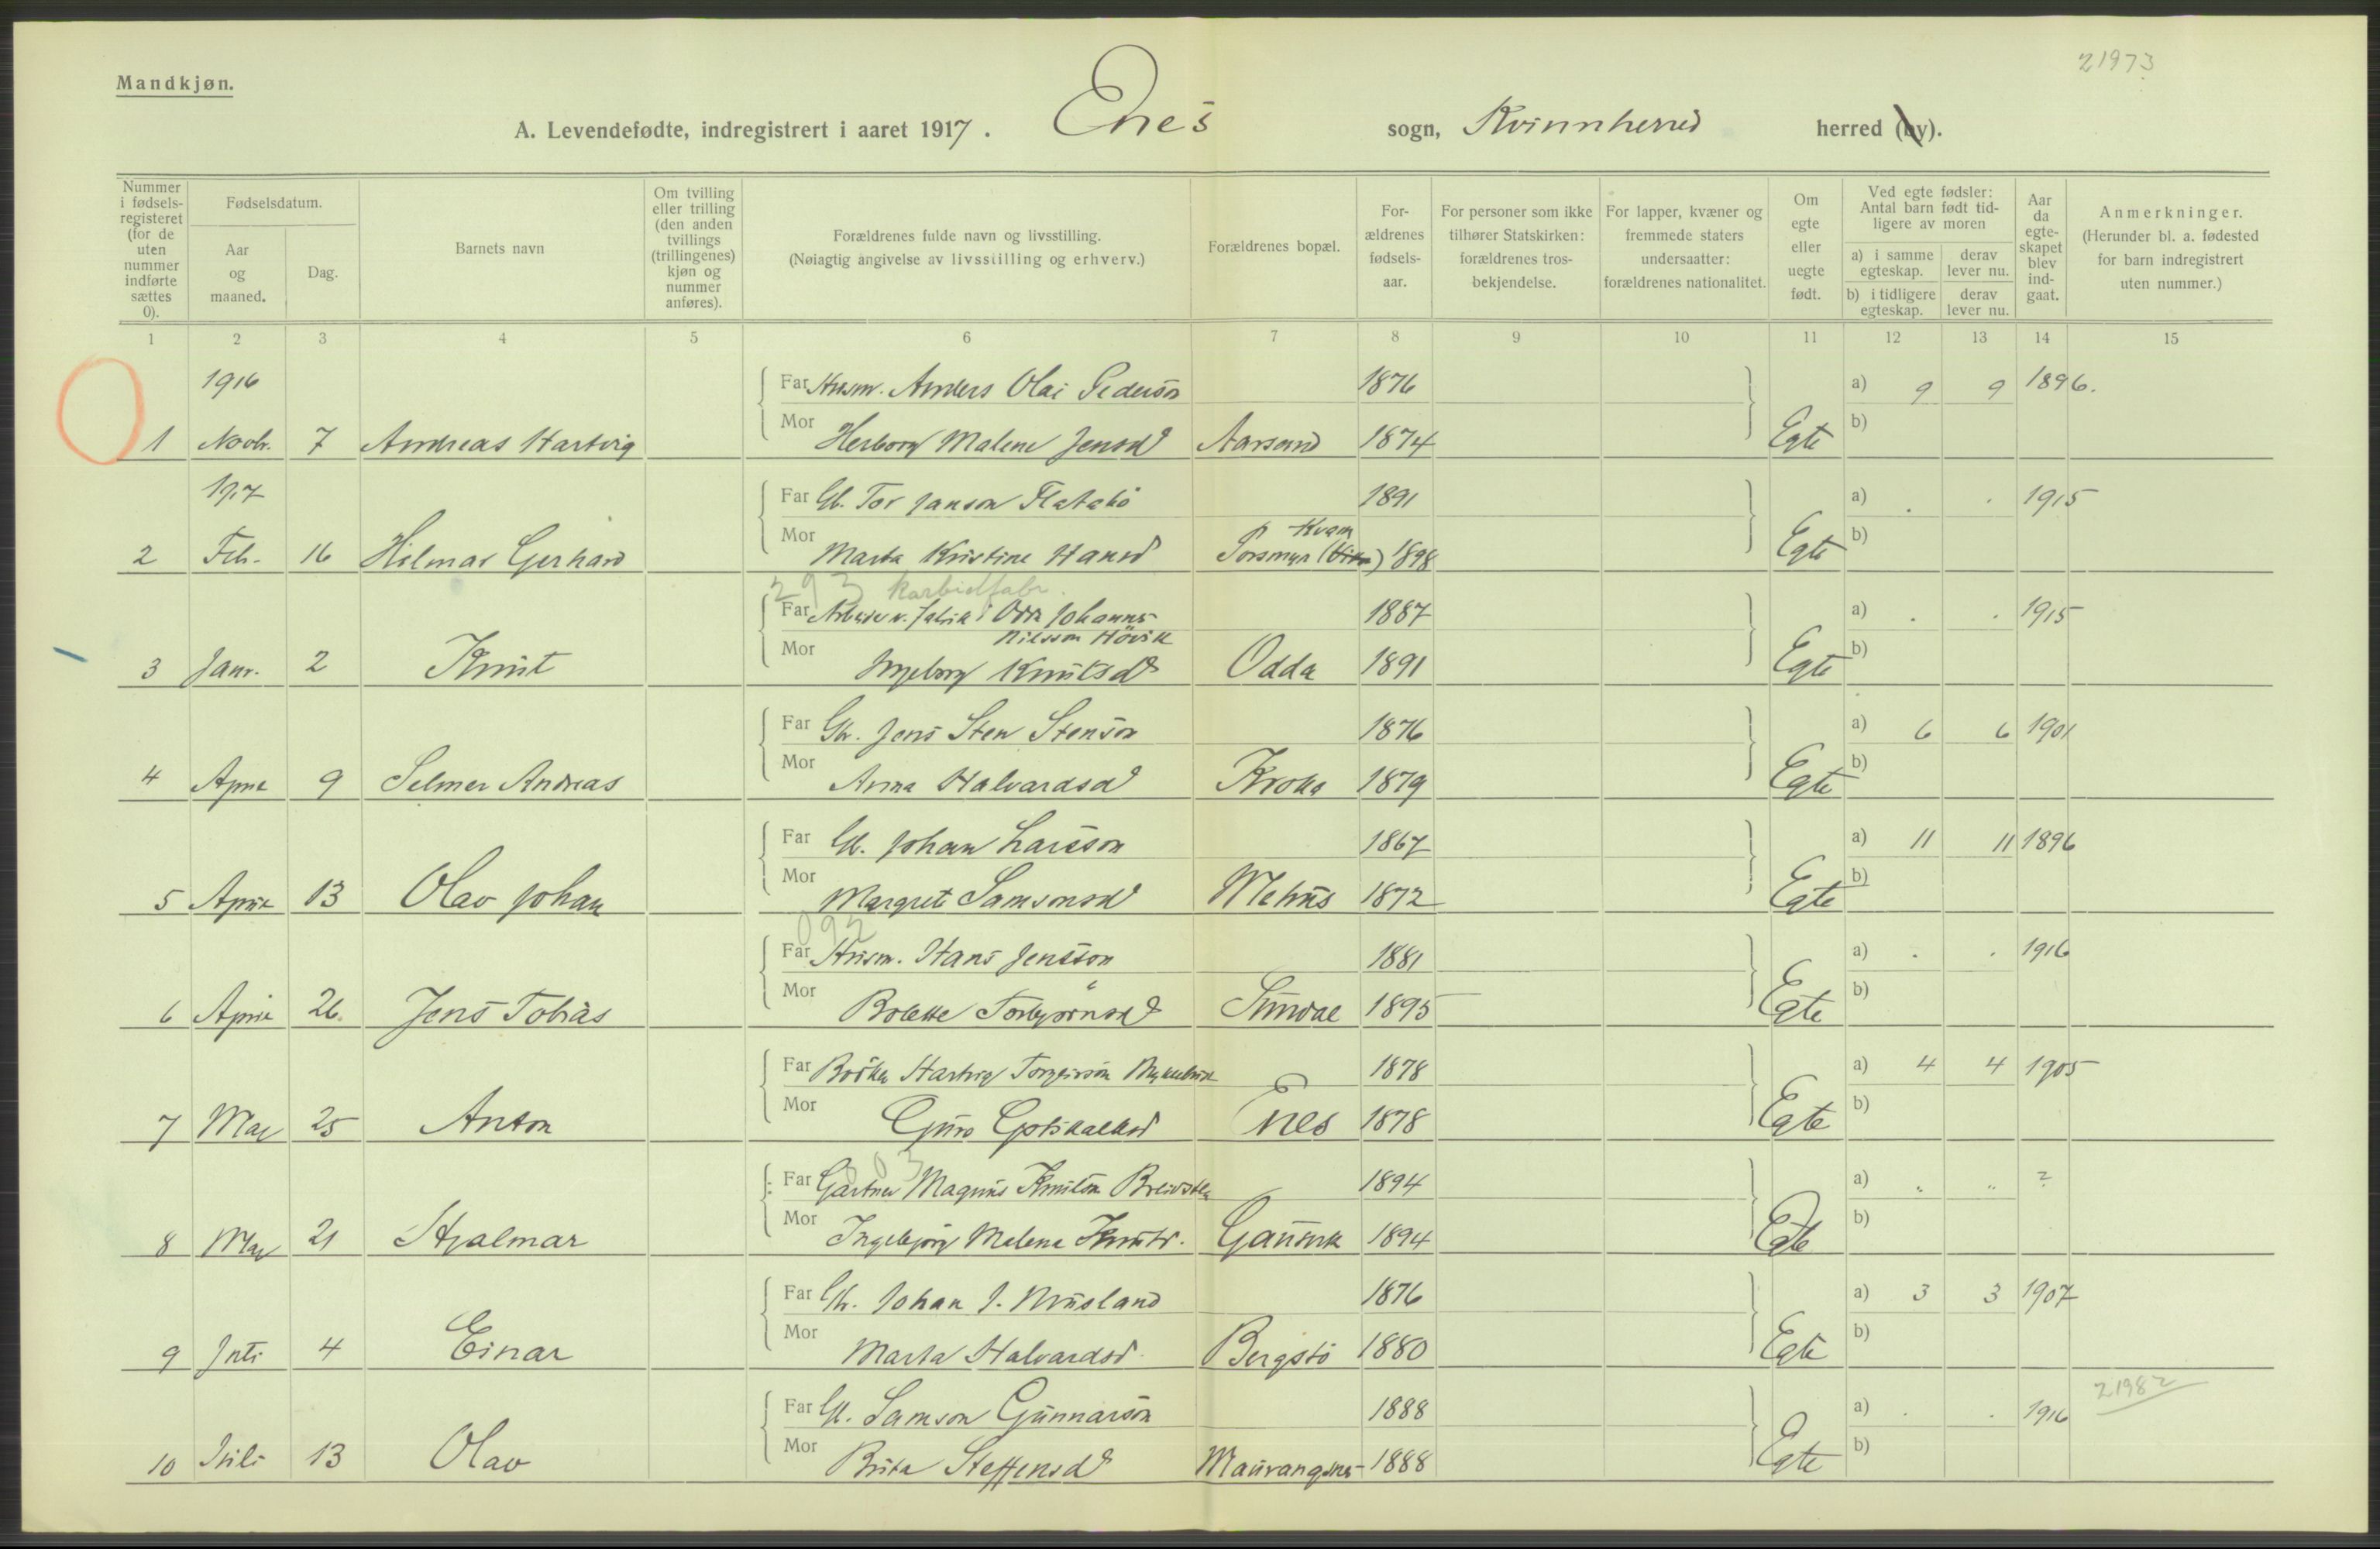 21973
Mandkjøn.
A. Levendefødte, indregistrert i aaret 1917. Enes sogn, Kvinnherred herred (by).
Nummer i fødsels-registeret (for de uten nummer indførte sættes 0).
Fødselsdatum.
Aar og maaned.
Dag.
Barnets navn
Om tvilling eller trilling (den anden tvillings (trillingenes) kjøn og nummer anføres).
Forældrenes fulde navn og livsstilling.
(Nøiagtig angivelse av livsstilling og erhverv.)
Forældrenes bopæl.
For-ældrenes fødsels-aar.
For personer som ikke tilhører Statskirken: forældrenes tros-bekjendelse.
For lapper, kvæner og fremmede staters undersaatter: forældrenes nationalitet.
Om egte eller uegte født.
Ved egte fødsler: Antal barn født tid-ligere av moren
a) i samme egteskap.
derav lever nu.
b) i tidligere egteskap.
derav lever nu.
Aar da egte-skapet blev ind-gaat.
Anmerkninger.
(Herunder bl. a. fødested for barn indregistrert uten nummer.)
1 2 3 4 5 6 7 8 9 10 11 12 13 14 15
1916 Far Husm. Anders Olai Pederson 1876 a) 9 9 1896.
1 Novbr. 7 Andreas Hartvig Mor Herborg Malene Jensd Aarsand 1874 Egte b)
1917 Far Gb. Tor Janson Flatabö 1891 a) . . 1915
Kvam
2 Feb. 16 Hilmar Gerhard Mor Marta Kristine Hansd Porsmyr (Vikör) 1898 Egte b)
293 Karbidfabr.
Far Arbeider v. fabrik i Odda Johannes 1887 a) . . 1915
Nilsson Hövik
3 Janr. 2 Knut Mor Ingeborg Knutsd Odda 1891 Egte b)
Far Gb. Jens Sten Stenson 1876 a) 6 6 1901
4 April 9 Selmer Andreas Mor Anna Halvardsd Kroka 1879 Egte b)
Far Gb. Johan Larsson 1867 a) 11 11 1896
5 April 13 Olav Johan Mor Margrete Samsonsd Mehus 1872 Egte b)
092
Far Husm. Hans Jensson 1881 a) . . 1916
6 April 26. Jens Tobias Mor Bolette Torbjörnsd Sundal 1895 Egte b)
Far Bödker Hartvig Torgeirson Myklebust 1878 a) 4 4 1905
7 Mai 25 Anton Mor Guro Gotskalksd Enes 1878 Egte b)
Far Gartner Magnus Knutson 1894 a) " " ?
8 Mai 21 Hjalmar Mor Ingebjørg Malena Knutsd. 1894 Egte b)
Far Gb. Johan J. Musland 1876 a) 3 3 1907
9 Juli 4 Einar Mor Marta Halvardsd. Bergstö 1880 Egte b)
21982
Far Gb. Samson Gunnarson 1888 a) . . 1916
10 Juli 13 Olav Mor Brita Steffensd Maurangsnes 1888 Egte b)